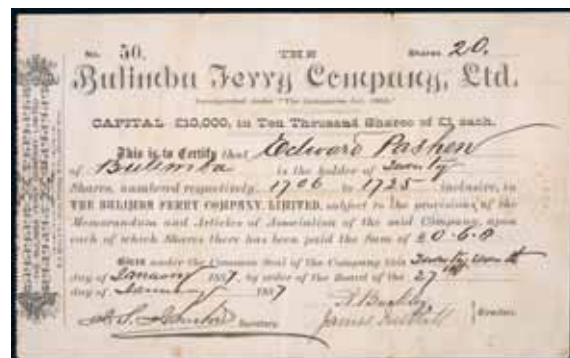 No. 50. THE Shares 20.
Bulimba Ferry Company, Ltd.
Incorporated under "The Companies Act, 1863."
CAPITAL £10,000, in Ten Thousand Shares of £1 each.
This is to Certify that Edward Pashen
of Bulimba is the holder of Twenty
Shares, numbered respectively, 1706 to 1725 inclusive, in
THE BULIMBA FERRY COMPANY, LIMITED, subject to the provisions of the
Memorandum and Articles of Association of the said Company, upon
each of which Shares there has been paid the Sum of £0.6.0
Given under the Common Seal of the Company this Twenty seventh
day of January 1887, by order of the Board of the 27th
day of January 1887
Secretary.
James